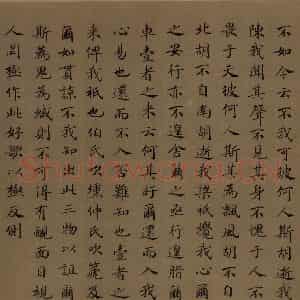 不如今云不我可彼何人斯胡逝我
陳我聞其聲不見其身不愧于人不
畏于天彼何人斯其為飄風胡不自
北胡不自南胡逝我梁祇攪我心爾
之安行亦不遑舍爾之亟行遑脂爾
車壹者之来云何其盱爾還而入我
心易也還而不入否難知也壹者之
来俾我祇也伯氏吹壎仲氏吹篪及
爾如貫諒不我知出此三物以詛爾
斯為鬼為蜮則不可得有靦面目視
人罔極作此好歌以極反側